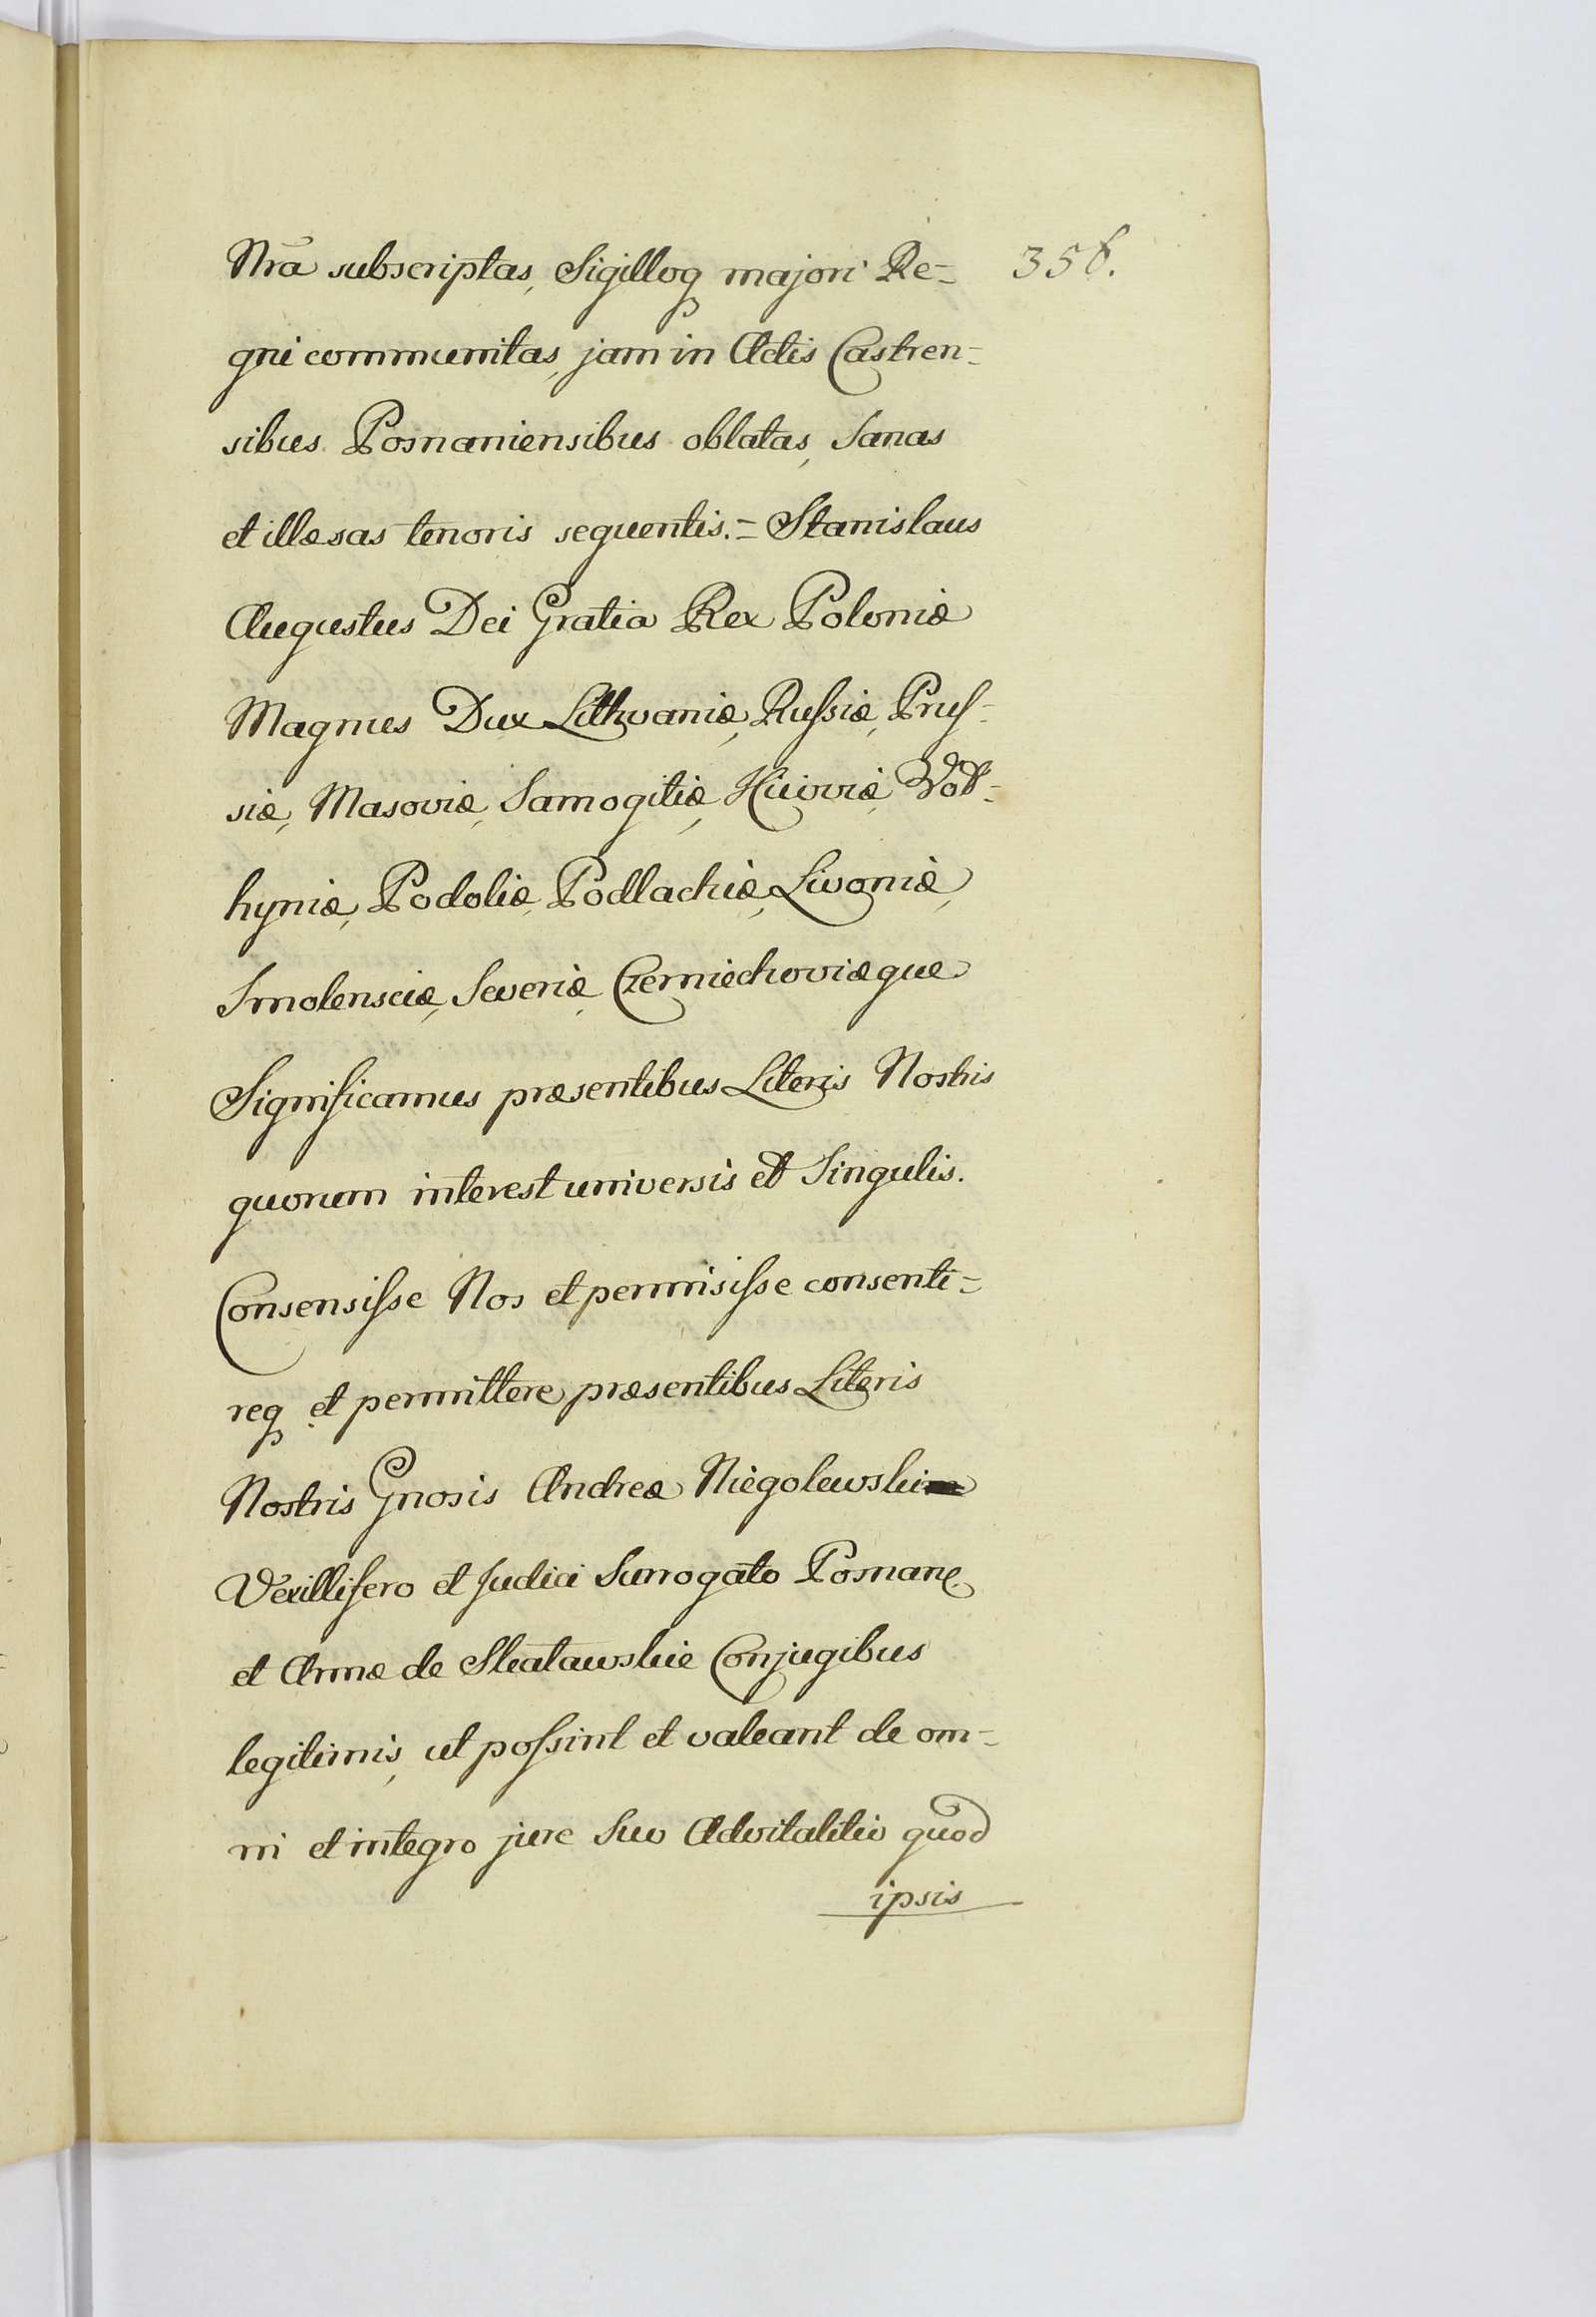 Nrã subscriptas, Sigilloq majori Re-
358.
gni communitas, jam in Actis Castren-
sibus Posnaniensibus oblatas, Sanas
et illæsas tenoris sequentis. = Stanislaus
Augustus Dei Gratia Rex Poloniæ
Magnus Dux Lithvaniæ, Russiæ, Prus-
siæ, Masoviæ, Samogitiæ, Kiioviæ, Vol-
hyniæ, Podoliæ, Podlachiæ, Livoniæ,
Smolensciæ, Severiæ, Czerniechoviæque
Significamus præsentibus Literis Nostris
quorum interest universis et Singulis.
Consensisse Nos et permisisse consenti-
req et permittere præsentibus Literis
Nostris Gnosis Andreæ Niegolewski
Vexillifero et Judici Surrogato Posnane
et Annæ de Skalawskie Conjugibus
legitimis, ut possint et valeant de om-
ni et integro jure Suo Advitalitio quod
ipsis